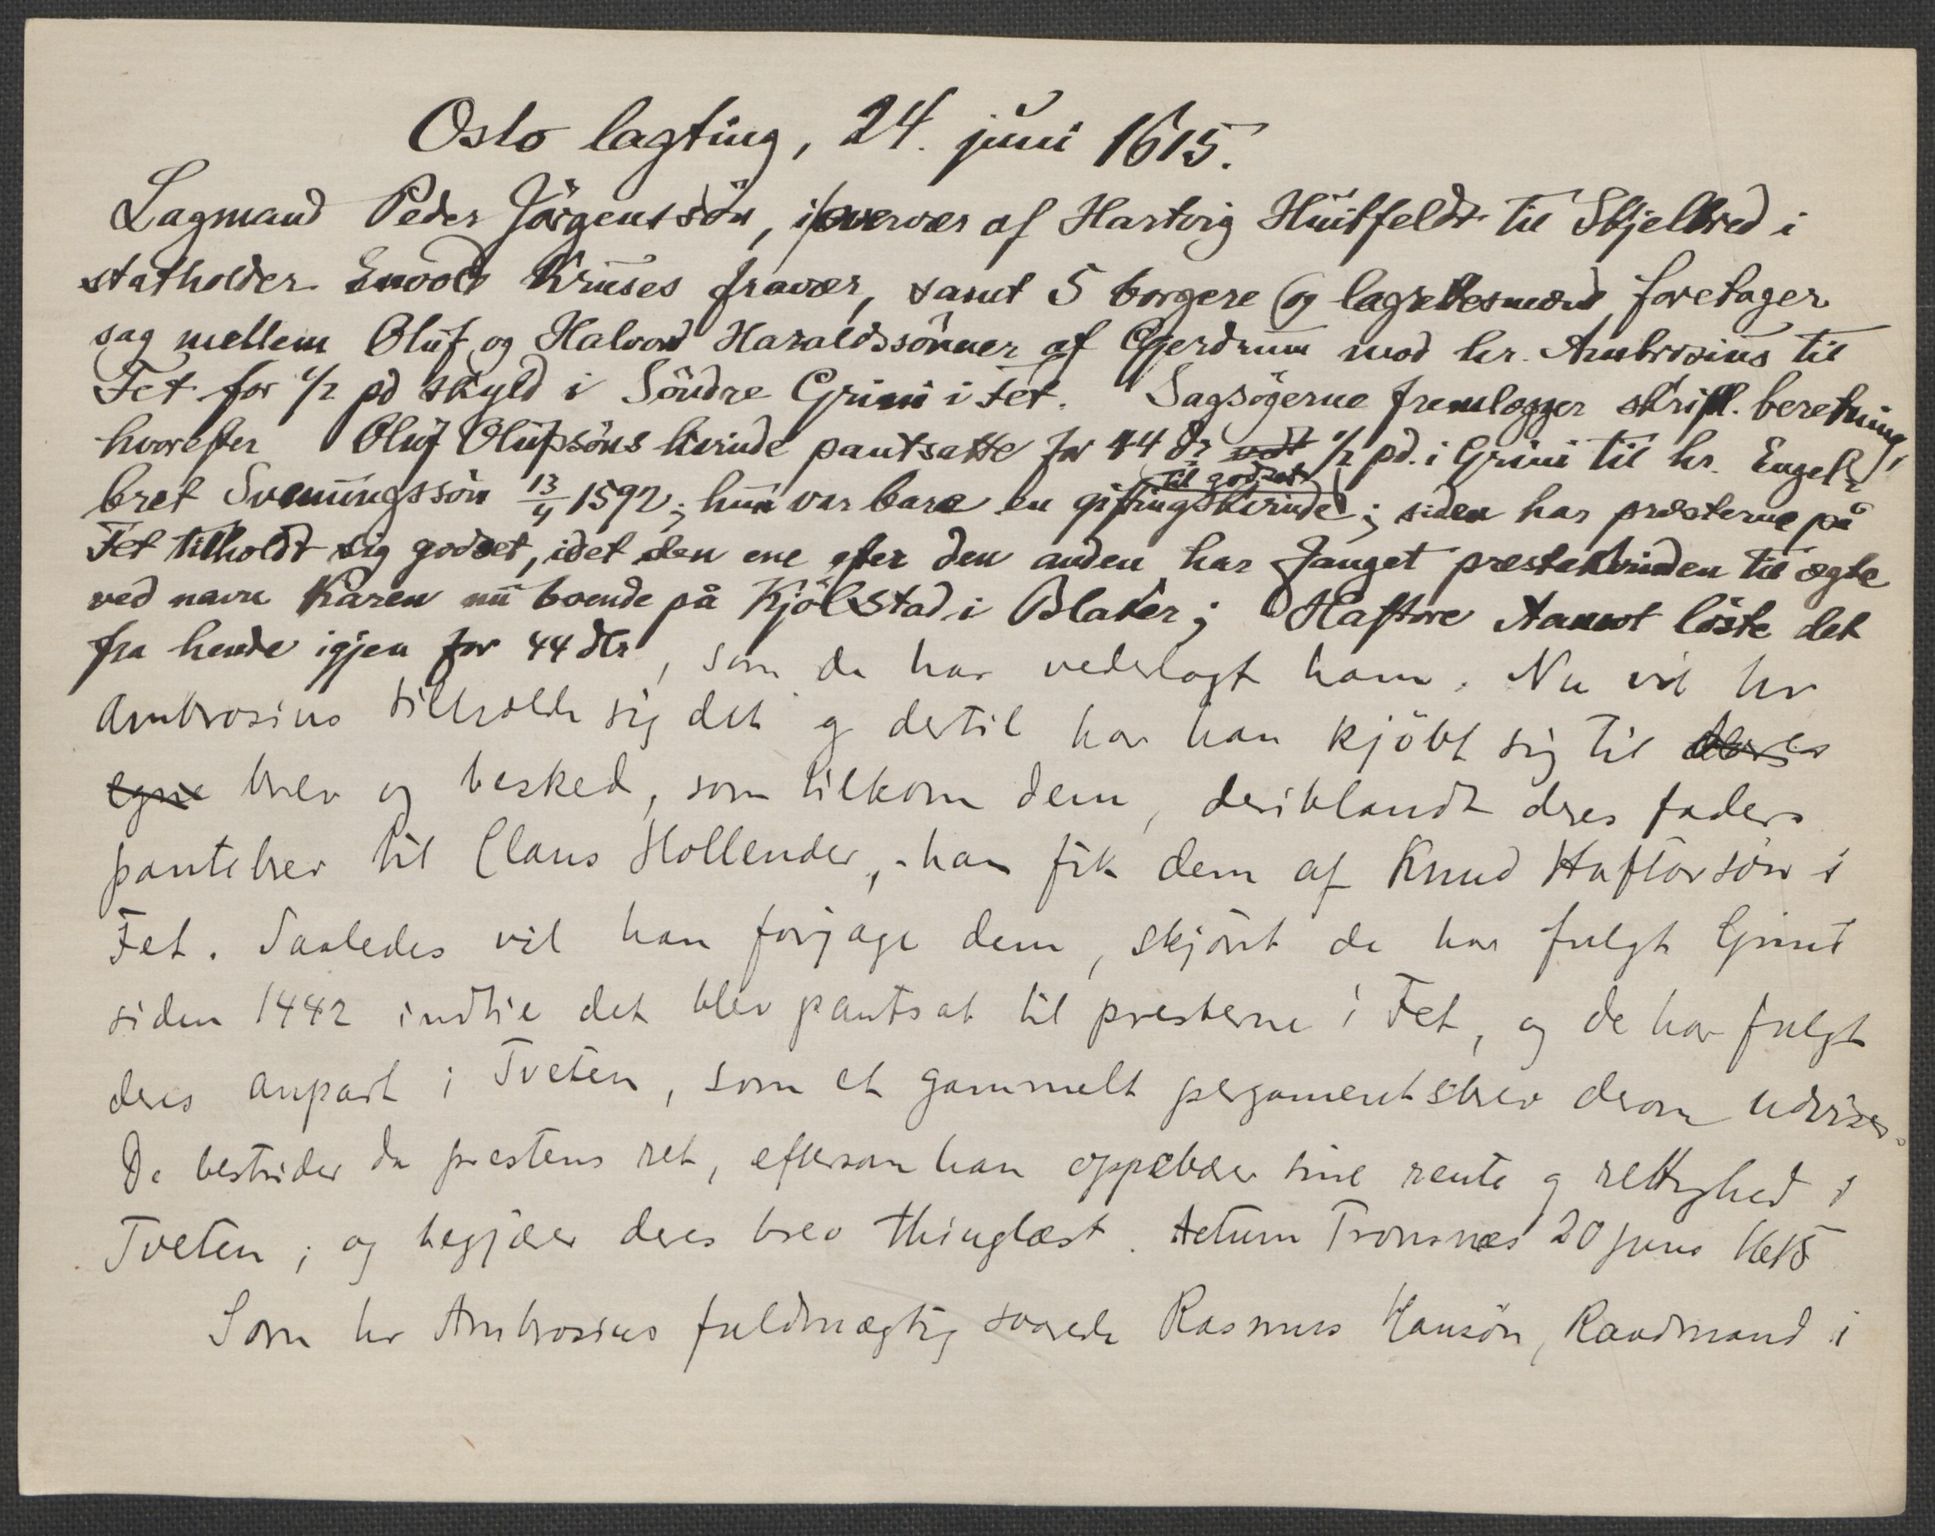 Oslo lagting, 24. juni 1615.
Lagmand Peder Jörgenssön, i overvær af Hartvig Huitfeldt til Skjelbred i
statholder Envold Kruses fravær, samt 5 borgere og lagrettesmænd foretager
sag mellem Oluf og Halvord Haraldssönner af Gjerdrum mod hr. Ambrosius til
Fet for 1/2 pd skyld i Söndre Grini i Fet. Sagsögerne fremlægger skriftl. beretning,
hvorefter Oluf Olufsöns kvinde pantsatte for 44 dr 1/2 pd. i Grini til hr. Engel-
til godset
bret Svenungssön 13/4 1592; hun var bare en giftingskvinde; siden har præsterne på
Fet tilholdt sig godset, idet den ene efter den anden har fanget prestekvinden til ægte
ved navn Karen nu boende på Kjölstad i Blaker; Haftore Aamot löste det
fra hende igjen for 44 dlr, som de har vederlagt ham. Nu vil hr
Ambrosius tilholde sig det og dertil har han kjöbt sig til deres
egne brev og besked, som tilkom dem, deriblandt deres faders
pantebrev til Claus Hollender, han fik dem af Knud Haftorsön i
Fet. Saaledes vil han forjage dem, skjönt de har fulgt Grini
siden 1442 indtil det blev pantsat til presterne i Fet, og de har fulgt
deres anpart i Tveten, som et gammelt pergamentsbrev derom udviser.
De bestrider da prestens ret, eftersom han oppebær sine rente og rettighed i
Tveten; og begjærer deres brev thinglæst. Actum Tronsnæs 20 juni 1615
Som hr Ambrosius fuldmægtig svarede Rasmus Hansön, Raadmand i